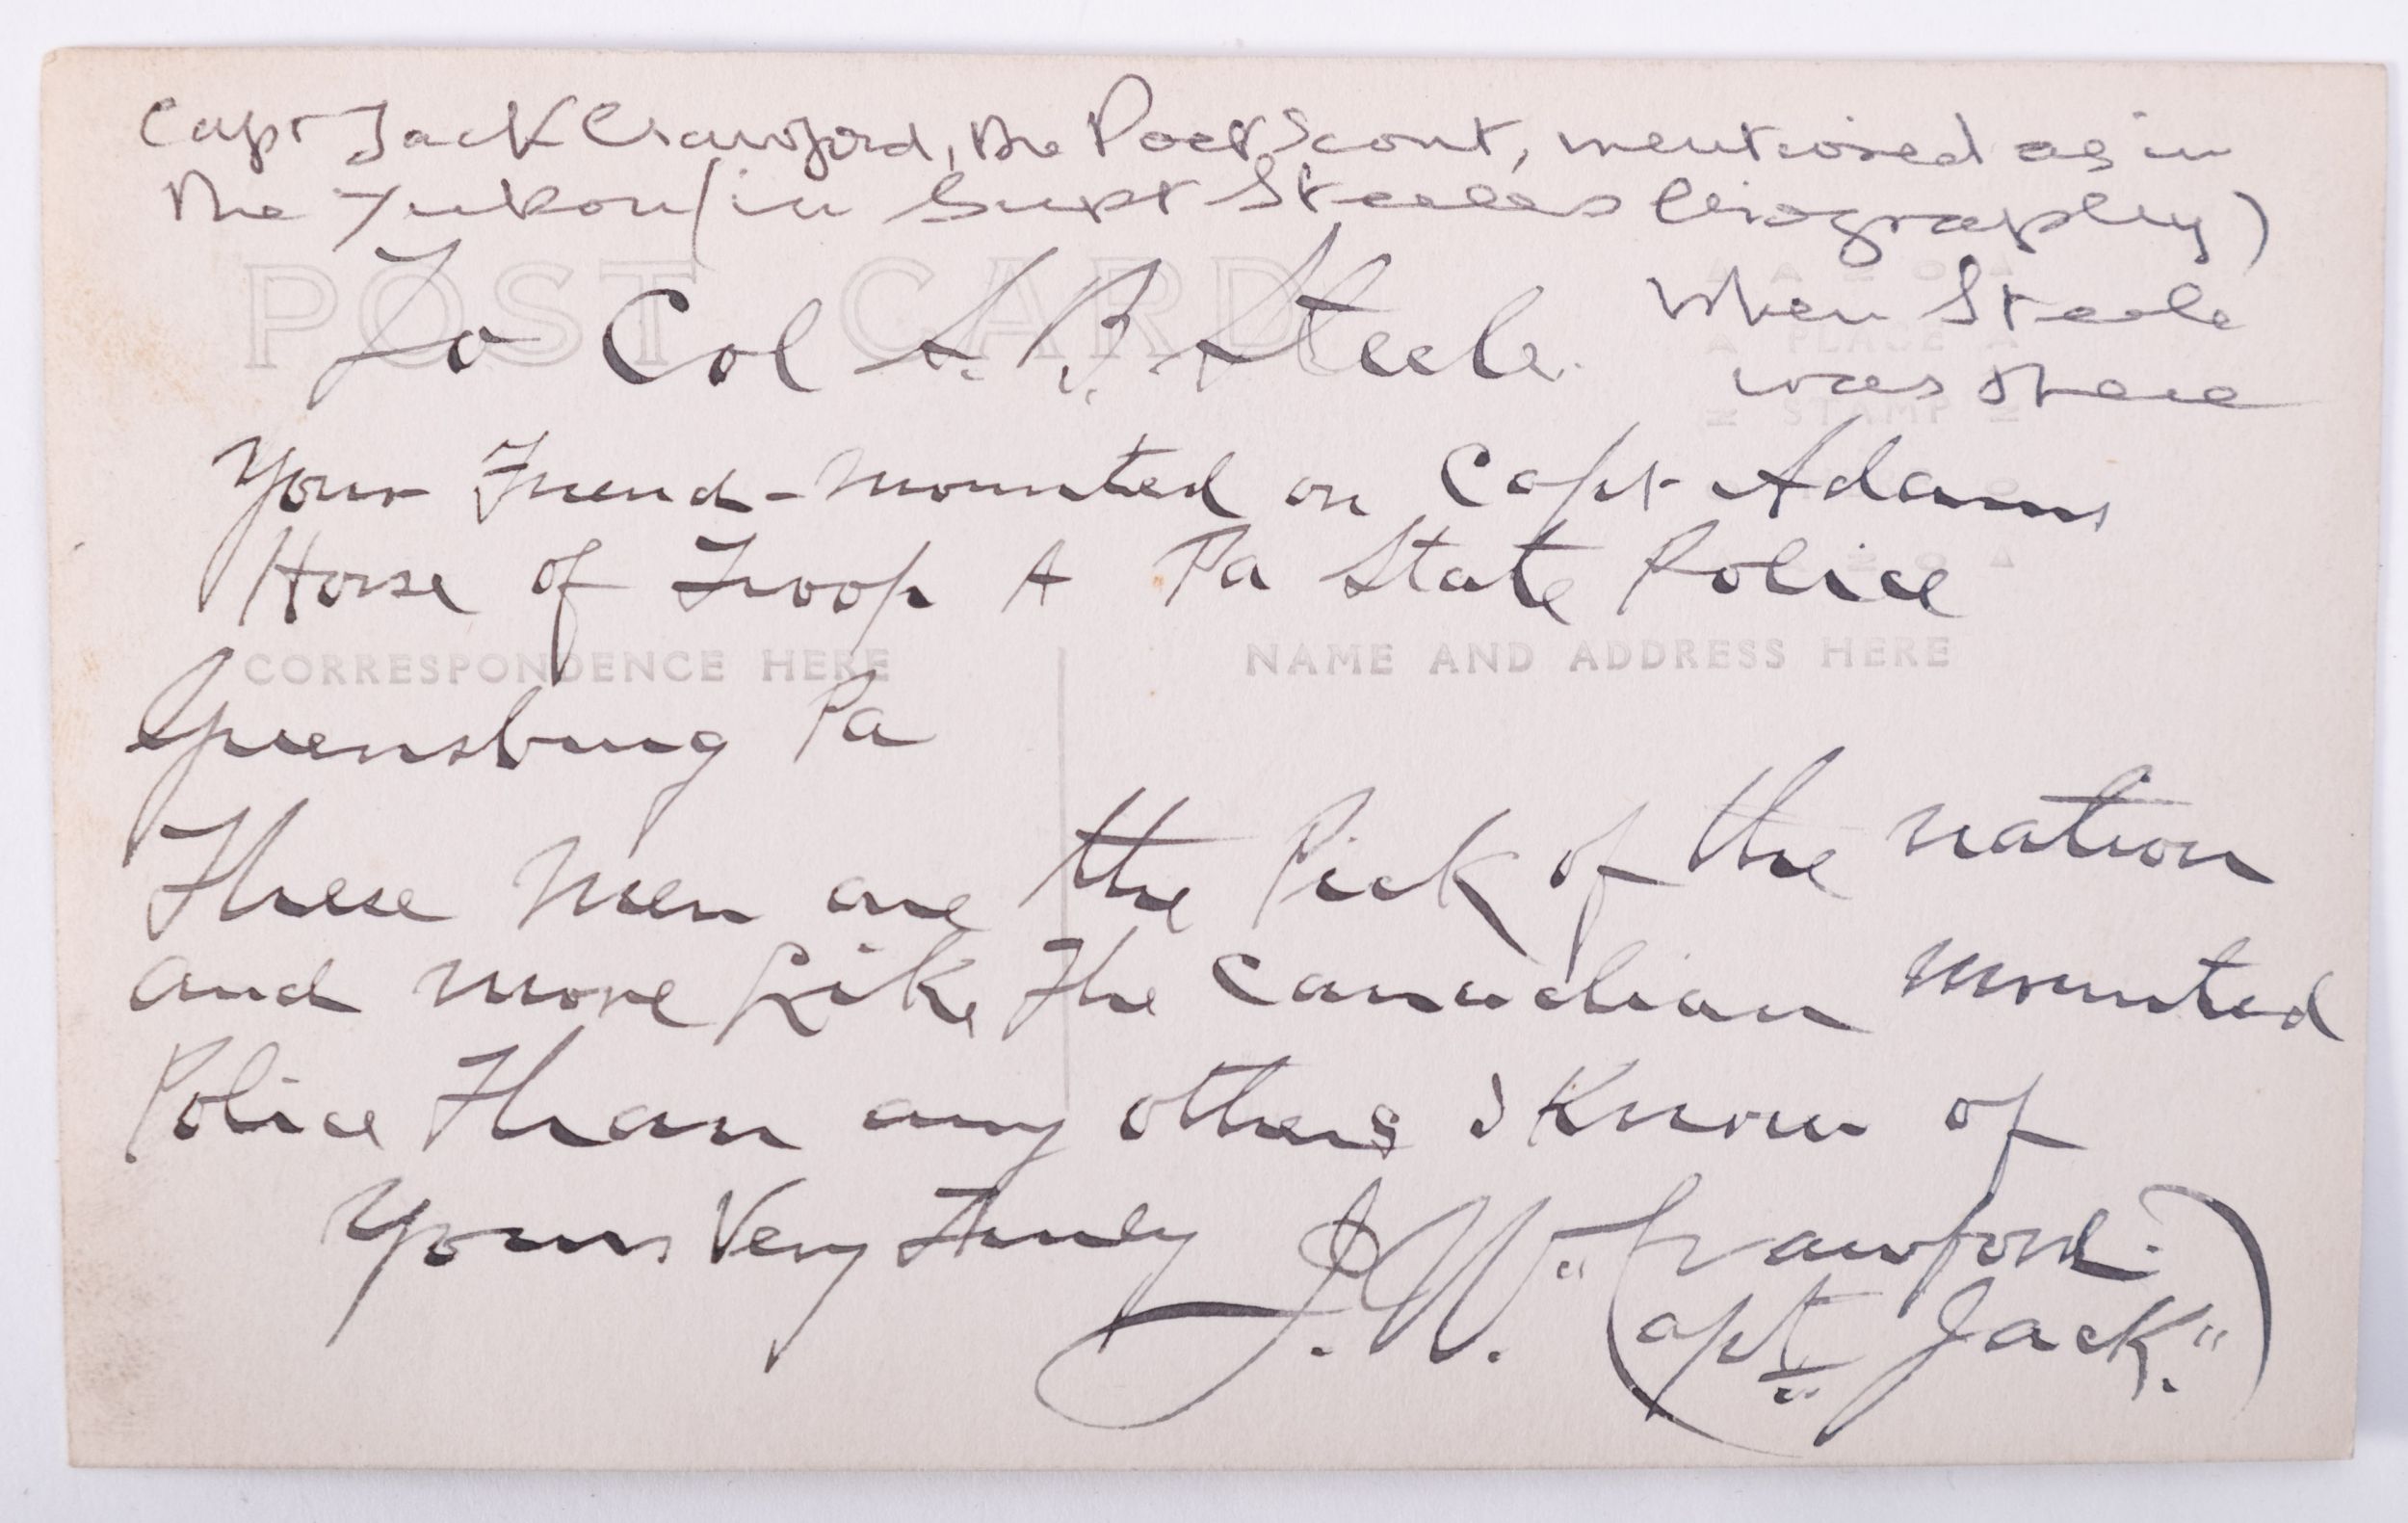 Capt Jack Crawford, the Poet Scout, mentioned as in
the Yukon (in Supt Steeles biography)
when Steele
was there
POST CARD
To Col S. B. Steele.
AZO
PLACE
STAMP
Your Friend - mounted on Capt Adams
Horse of Troop A Pa State Police
CORRESPONDENCE HERE
NAME AND ADDRESS HERE
Greensburg Pa
These men are the Pick of the nation
and more Like The Canadian mounted
Police Than any others I Know of
Yours Very Truly J. W. Crawford.
"(Capt Jack.")